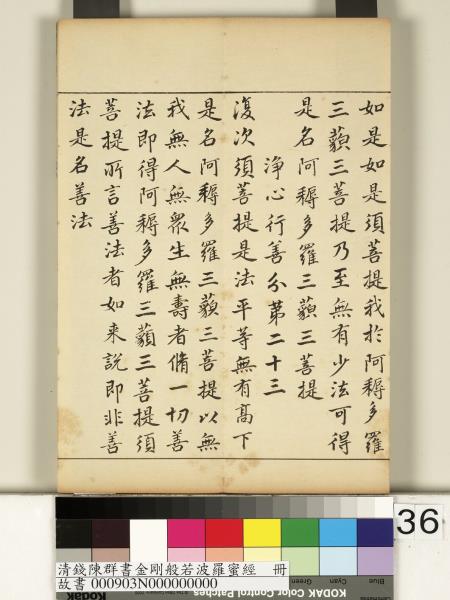 如是如是須菩提我於阿耨多羅
三藐三菩提乃至無有少法可得
是名阿耨多羅三藐三菩提
淨心行善分第二十三
復次須菩提是法平等無有高下
是名阿耨多羅三藐三菩提以無
我無人無衆生無壽者脩一切善
法即得阿耨多羅三藐三菩提須
菩提所言善法者如来說即非善
法是名善法
36
Blue
Cyan
Green
KODAK Color Control Patches
清錢陳群書金剛般若波羅蜜經 冊
故書 000903N000000000